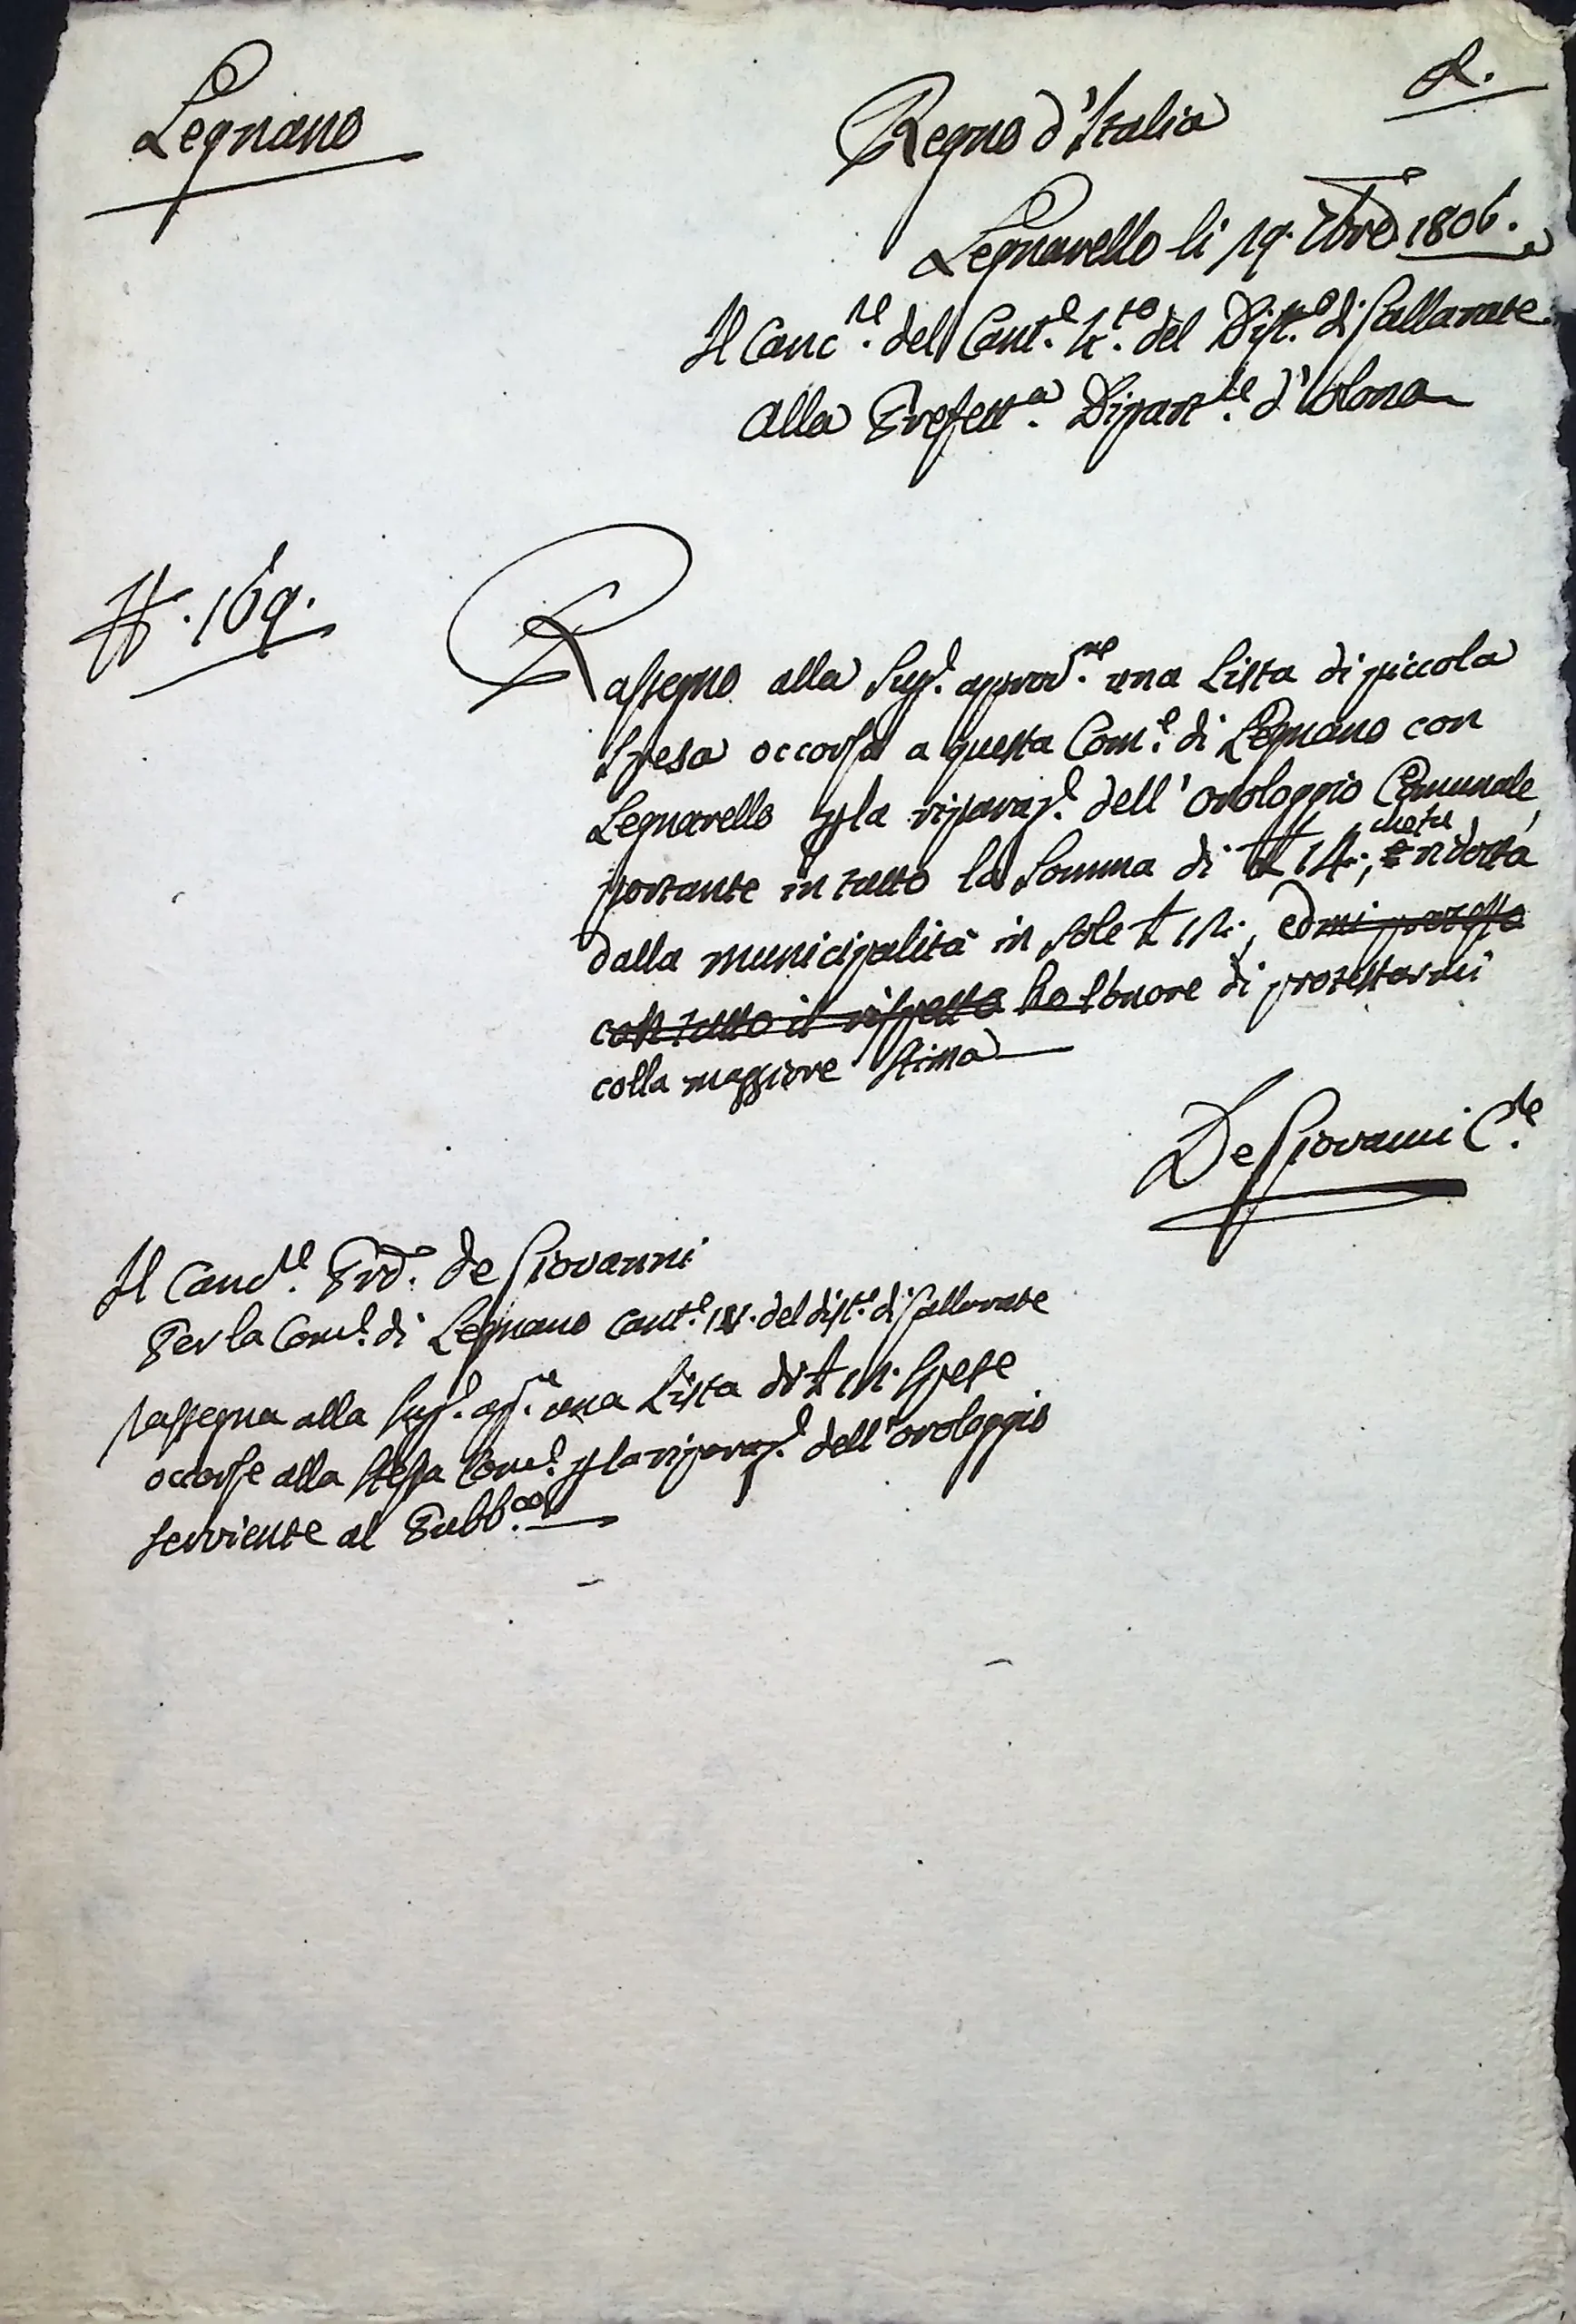 Legnano
Regno d'Italia
Legnarello li 19. 7bre 1806.
Il Canc.re del Cant.e 4.to del Dist.o di Gallarate
Alla Prefett.a Dipart.le d'Olona
N. 169.
Rassegno alla Sup.e approv.ne una Lista di piccola
spesa occorsa a questa Com.e di Legnano con
Legnarello p la riparaz.e dell'orologgio Comunale,
portante in tutto la somma di £ 14:, che fu ridotta
dalla municipalità in sole £ 12:, ed mi protesto
con tutto il rispetto ho l'onore di protestarmi
colla maggiore stima
De Giovanni C.re
Il Canc.re Prov. de Giovanni
Per la Com.e di Legnano Cant.e IV. del dist.o di Gallarate
rassegna alla Sup.e ap.ne una Lista di £ 12: spese
occorse alla stessa Com.e p la riparaz.e dell'orologgio
serviente al Pubb.co